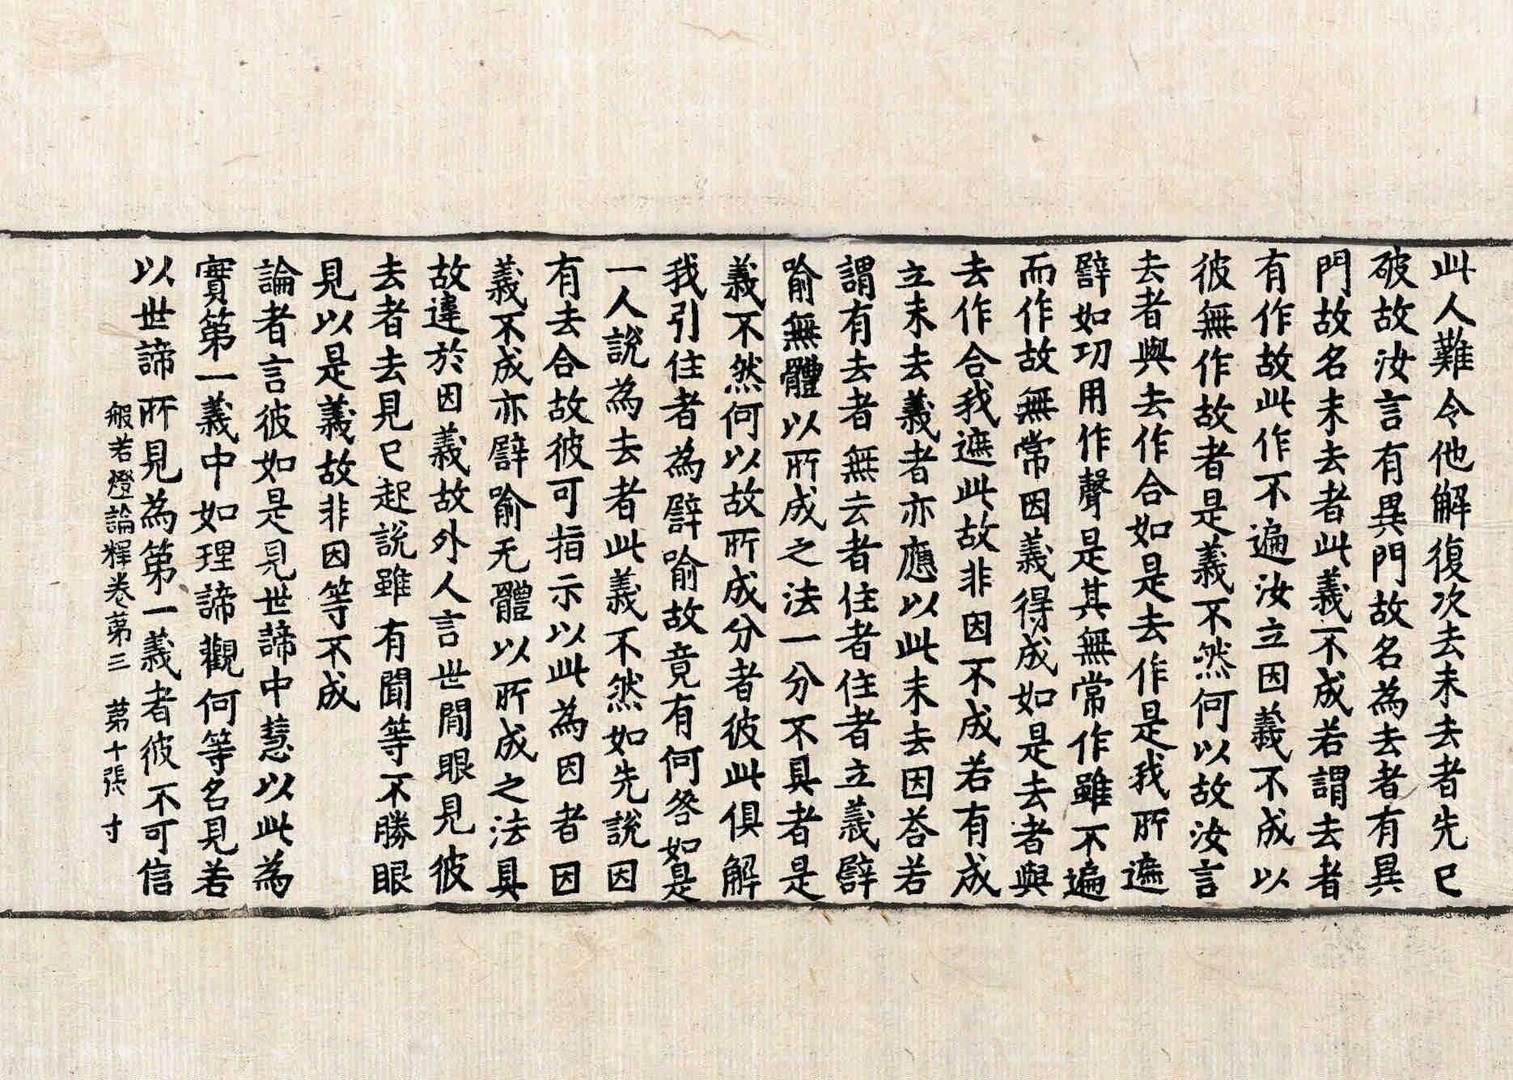 此人難令他解復次去未去者先已
破故汝言有異門故名為去者有異
門故名未去者此義不成若謂去者
有作故此作不遍汝立因義不成以
彼無作故者是義不然何以故汝言
去者與去作合如是去作是我所遮
譬如功用作聲是其無常作雖不遍
而作故無常因義得成如是去者與
去作合我遮此故非因不成若有成
立未去義者亦應以此未去因荅若
謂有去者無去者住者住者立義譬
喻無體以所成之法一分不具者是
義不然何以故所成分者彼此俱解
我引住者為譬喻故竟有何咎如是
一人說為去者此義不然如先說因
有去合故彼可指示以此為因者因
義不成亦譬喻无體以所成之法具
故違於因義故外人言世間眼見彼
去者去見已起說雖有聞等不勝眼
見以是義故非因等不成
論者言彼如是見世諦中慧以此為
實第一義中如理諦觀何等名見若
以世諦所見為第一義者彼不可信
般若燈論釋卷第三　第十張　寸